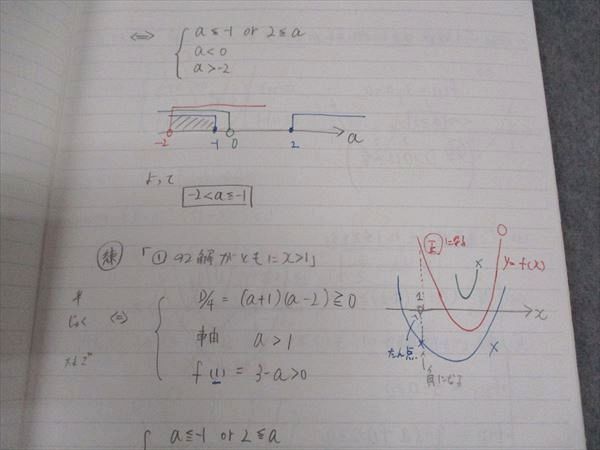 ⇔ { a ≦ -1 or 2 ≦ a
a < 0
a > -2
-2 -1 0 2 a
よって
-2 < a ≦ -1
練 「①の2解がともに x > 1」
⇔ { D/4 = (a+1)(a-2) ≧ 0
軸 a > 1
f(1) = 3-a > 0
正になる
y = f(x)
x
1
x
たん点
x
負になる
{ a ≦ -1 or 2 ≦ a